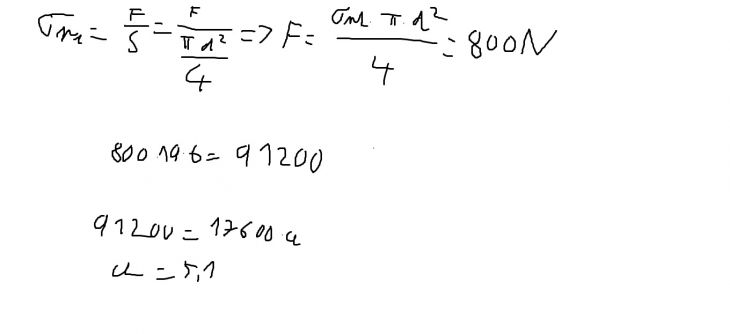 σm = F/S = F/(πd²/4) => F = σm·π·d²/4 = 800N
800 196 = 91200
91200 = 17600 a
a = 5,1